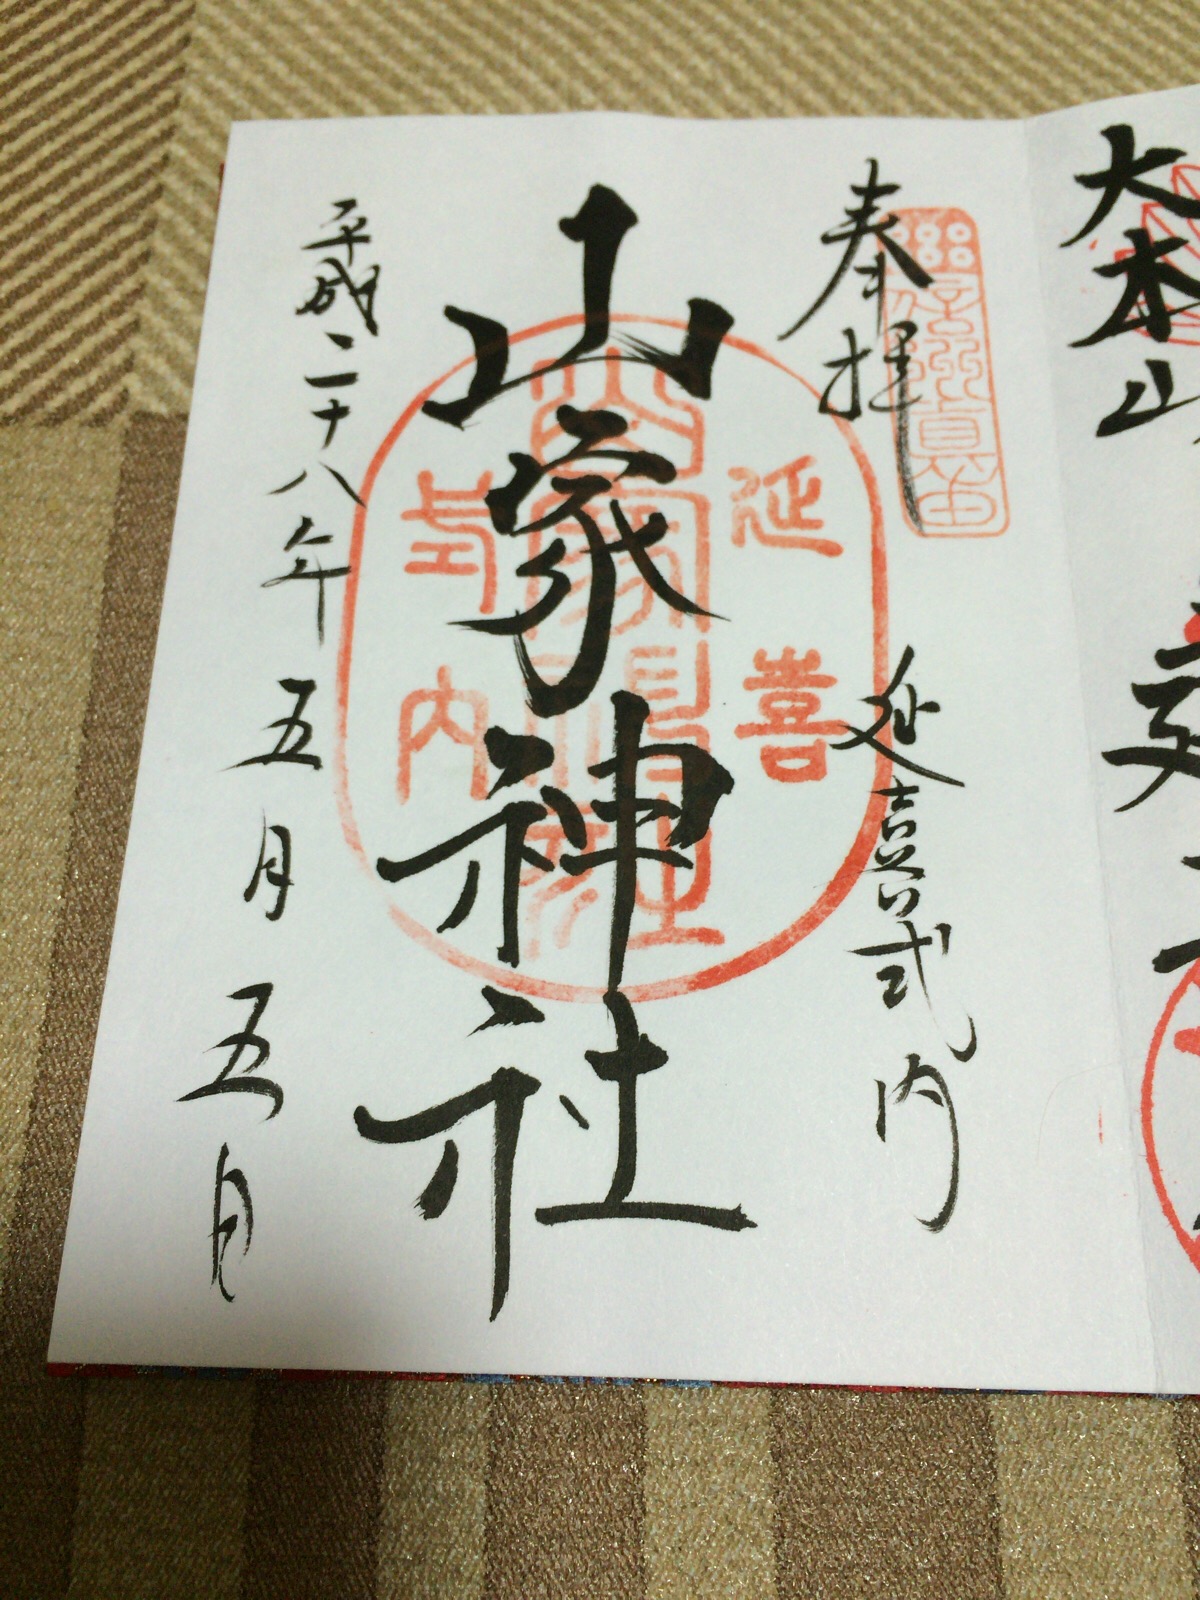 大本山
信州真田
奉拝
延喜式内
延喜
山家神社
式内
山家神社
平成二十八年五月五日